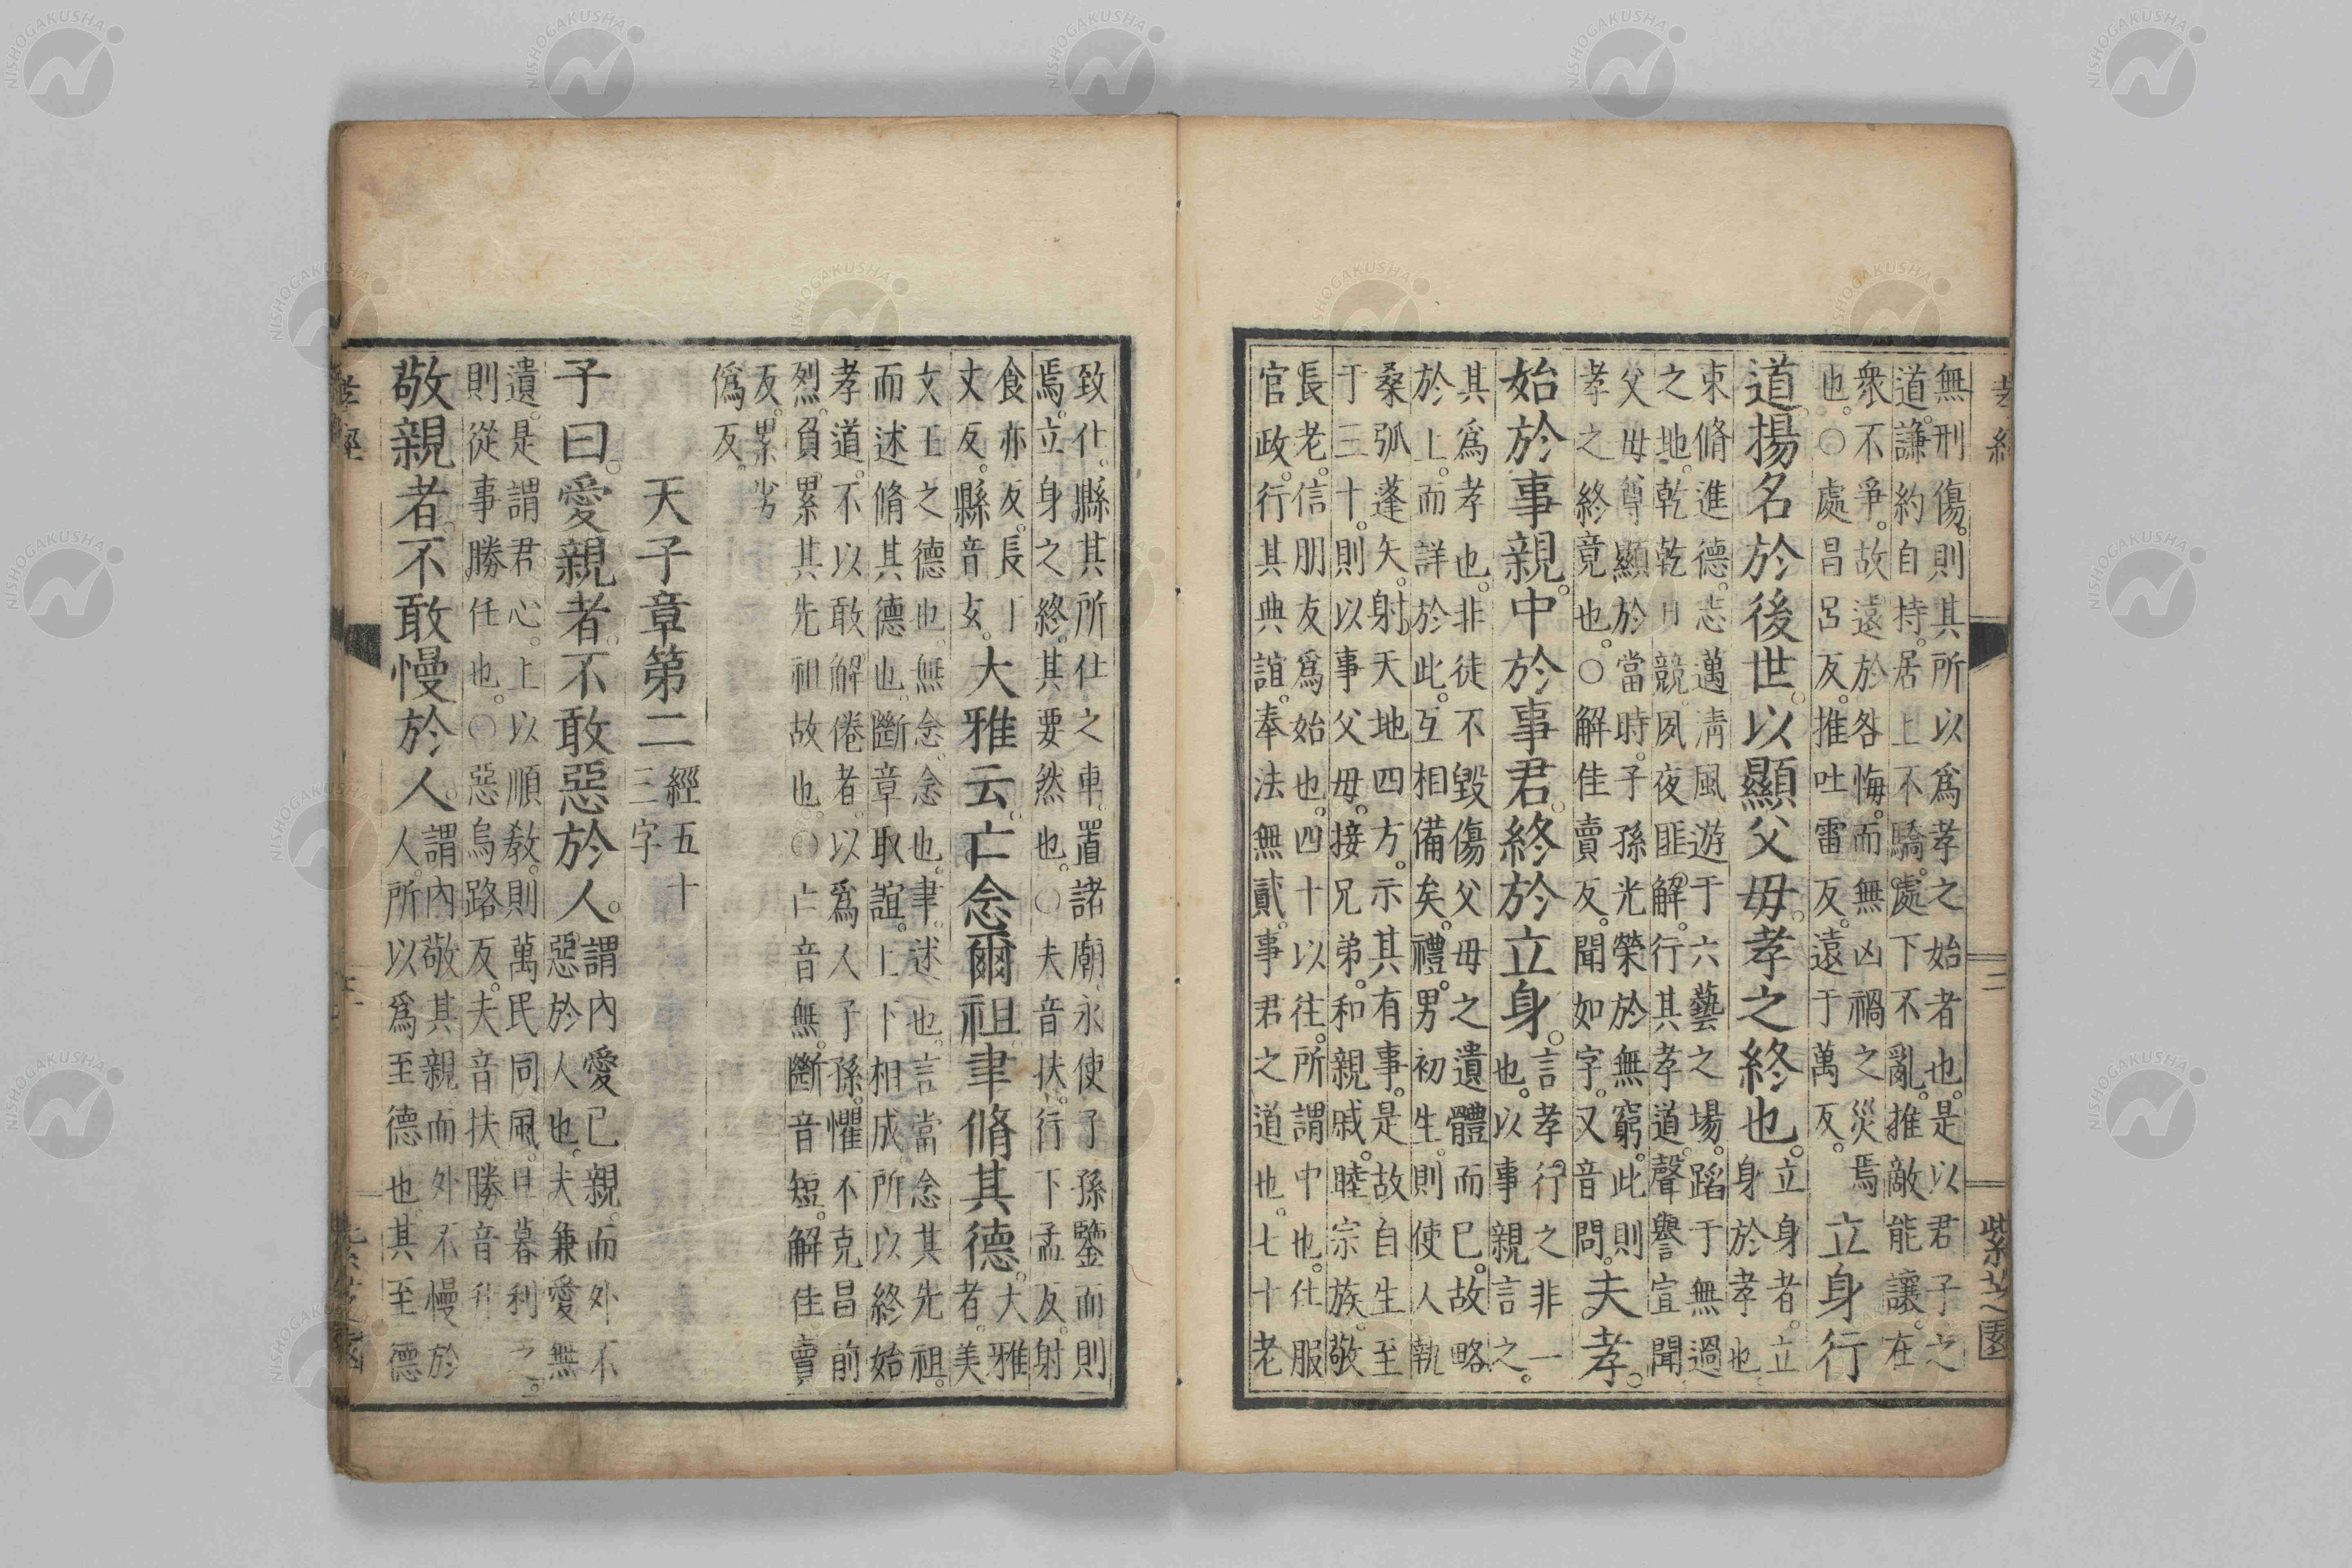 孝經　二　紫芝園
無刑傷。則其所以爲孝之始者也。是以君子之
道。謙約自持。居上不驕。處下不亂。推敵能讓。在
衆不爭。故遠於咎悔。而無凶禍之災焉
也。〇處昌呂反。推吐雷反。遠于萬反。
立身行
道揚名於後世。以顯父母。孝之終也。
立身者。立
身於孝也。
束脩進德。志邁淸風。遊于六藝之場。蹈于無過
之地。乾乾日競。夙夜匪解。行其孝道。聲譽宣聞
父母尊顯於當時。子孫光榮於無窮。此則
孝之終竟也。〇解佳賣反。聞如字。又音問。
夫孝。
始於事親。中於事君。終於立身。
言孝行之非一
也。以事親言之。
其爲孝也。非徒不毀傷父母之遺體而已。故略
於上。而詳於此。互相備矣。禮。男初生。則使人執
桑弧蓬矢。射天地四方。示其有事。是故自生至
于三十。則以事父母。接兄弟。和親戚。睦宗族。敬
長老。信朋友爲始也。四十以往。所謂中也。仕服
官政。行其典誼。奉法無貳。事君之道也。七十老
致仕。縣其所仕之車。置諸廟。永使子孫鑒而則
焉。立身之終。其要然也。〇夫音扶。行下孟反。射
食亦反。長丁
丈反。縣音玄。
大雅云。亡念爾祖聿脩其德。
大雅
者。美
文王之德也。無念。念也。聿。述也。言當念其先祖。
而述脩其德也。斷章取誼。上下相成。所以終始
孝道。不以敢解倦者。以爲人子孫。懼不克昌前
烈。負累其先祖故也。〇亡音無。斷音短。解佳賣
反。累劣
僞反。
天子章第二
經五十
三字
子曰。愛親者。不敢惡於人。
謂內愛已親。而外不
惡於人也。夫兼愛無
遺。是謂君心。上以順敎。則萬民同風。旦暮利之。
則從事勝任也。〇惡烏路反。夫音扶。勝音升
敬親者。不敢慢於人。
謂內敬其親。而外不慢於
人。所以爲至德也。其至德
孝經　紫芝園
NISHOGAKUSHA